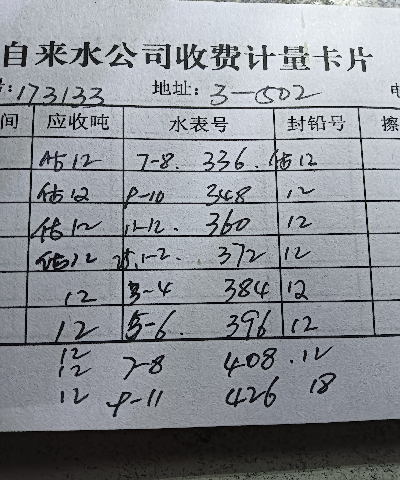 自来水公司收费计量卡片
:173133 地址: 3-502
间 应收吨 水表号 封铅号
估12 7-8. 336. 估12
估12 9-10 348 12
估12 11-12. 360 12
估12 25.1-2. 372 12
12 3-4 384 12
12 5-6. 396 12
12
12 7-8 408. 12
12 9-11 426 18